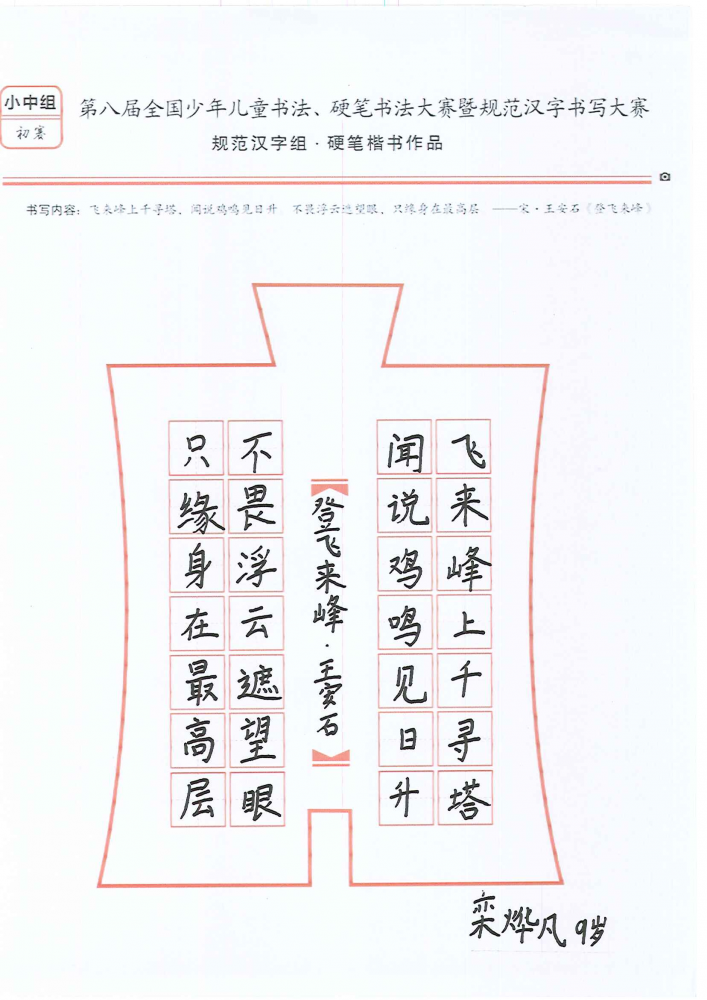 小中组
初赛
第八届全国少年儿童书法、硬笔书法大赛暨规范汉字书写大赛
规范汉字组·硬笔楷书作品
书写内容：飞来峰上千寻塔，闻说鸡鸣见日升。不畏浮云遮望眼，只缘身在最高层 ——宋·王安石《登飞来峰》
飞来峰上千寻塔
闻说鸡鸣见日升
登飞来峰·王安石
不畏浮云遮望眼
只缘身在最高层
栾烨凡 9岁